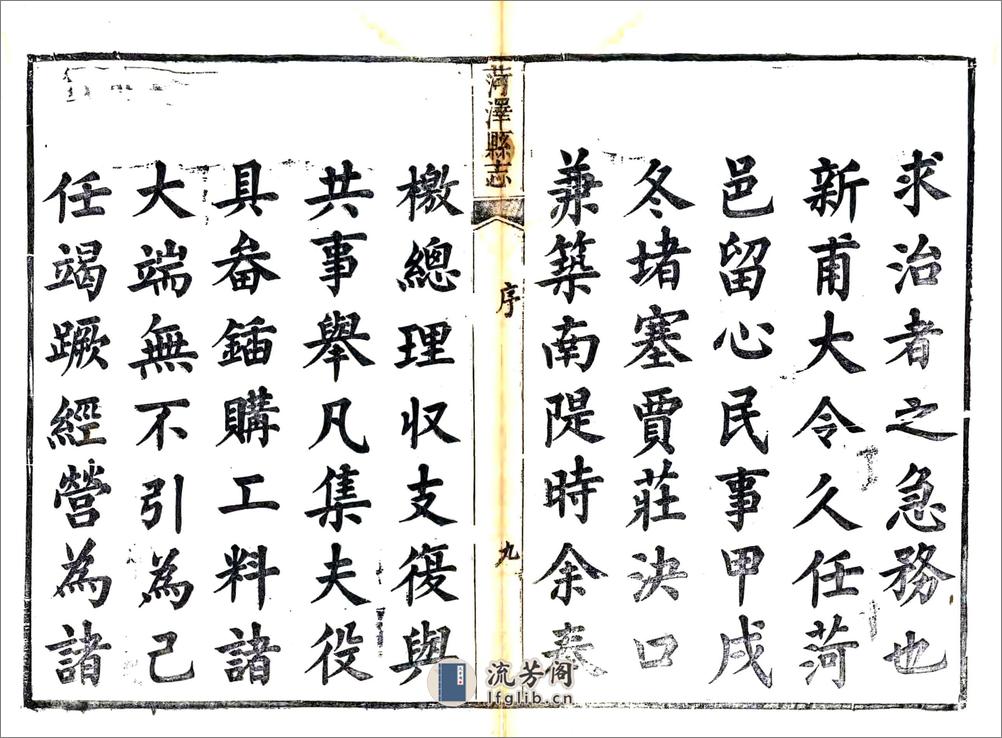 求治者之急務也
新甫大令久任菏
邑留心民事甲戌
冬堵塞賈莊決口
兼築南隄時余奏
菏澤縣志
序
九
檄總理收支復與
共事舉凡集夫役
具畚鍤購工料諸
大端無不引為己
任竭蹶經營為諸
流芳阁
lfglib.cn